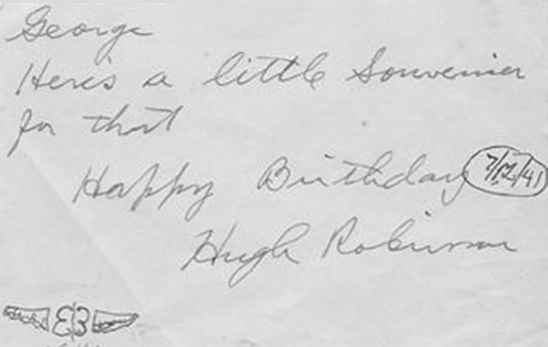 George
Here's a little Souvenier
for that
Happy Birthday 7/12/41
Hugh Robinson